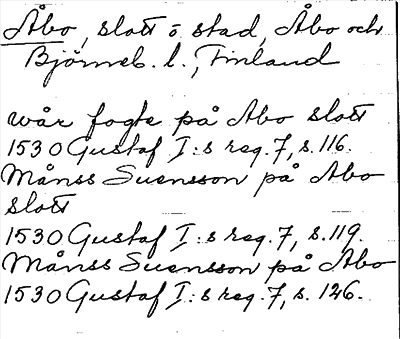 Åbo, slott o stad, Åbo och
Björneb. l., Finland
wår fogte på Åbo slott
1530 Gustaf I:s reg. 7, s. 116.
Månss Suensson på Åbo
slott
1530 Gustaf I:s reg. 7, s. 119.
Månss Suensson på Åbo
1530 Gustaf I:s reg. 7, s. 126.